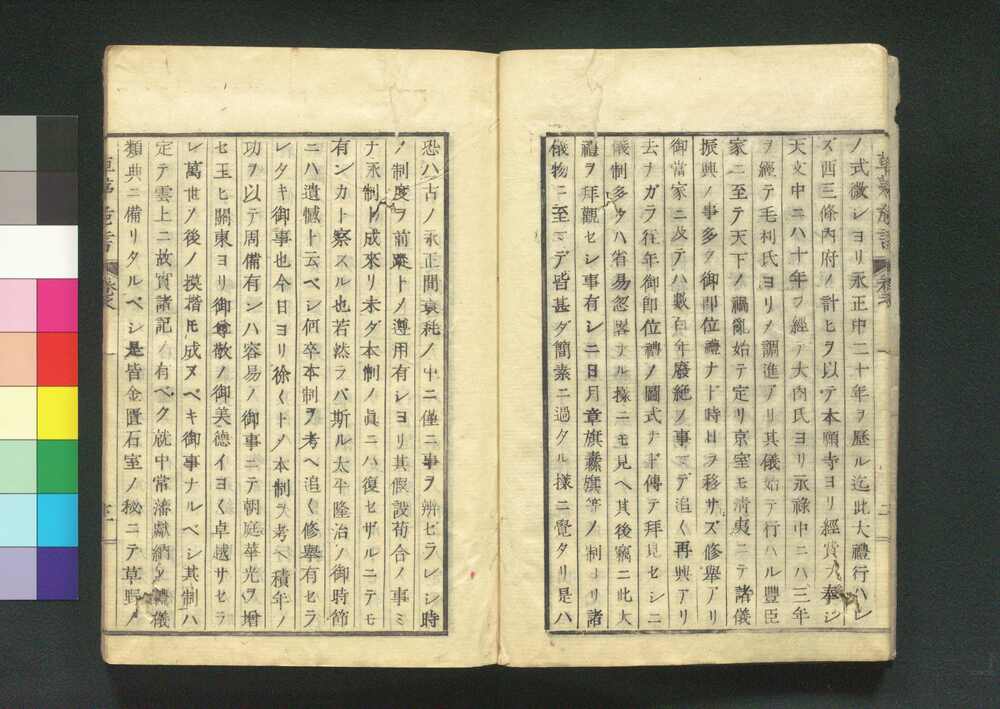 ノ式微シヨリ永正中二十年ヲ歴ル迄此大禮行ハレ
ズ西三條内府ノ計ヒヲ以テ本願寺ヨリ經費ヲ奉シ
天文中ニハ十年ヲ經テ大内氏ヨリ永祿中ニハ三年
ヲ經テ毛利氏ヨリノ調進アリ其儀始テ行ハル豐臣
家ニ至テ天下ノ禍亂始テ定リ京室モ清夷ニテ諸儀
振興ノ事多ク御即位禮ナド時日ヲ移サズ修舉アリ
御當家ニ及テハ數百年廢絶ノ事マデ追〱再興アリ
去ナガラ往年御即位禮ノ圖式ナド傳テ拜見セシニ
儀制多クハ省易忽畧ナル樣ニモ見ヘ其後竊ニ此大
禮ヲ拜觀セシ事有シニ日月章旗纛旗等ノ制ヨリ諸
儀物ニ至マデ皆甚ダ簡素ニ過タル樣ニ覺タリ是ハ
恐ハ古ノ永正間衰秏ノ中ニ僅ニ事ヲ辨ビラレシ時
ノ制度ヲ前蹤トノ遵用有シヨリ其假設苟合ノ事ミ
ナ永制ト成來リ未ダ本制ノ眞ニハ復セザルニテモ
有ンカト察スル也若然ラバ斯ル太平隆治ノ御時節
ニハ遺憾ト云ベシ何卒本制ヲ考ヘ追〱修舉有セラ
レタキ御事也今日ヨリ徐〱トノ本制ヲ考ヘ積年ノ
功ヲ以テ周備有ンハ容易ノ御事ニテ朝庭華光ヲ增
セ玉ヒ關東ヨリ御尊敬ノ御美德イヨ〱卓越サセラ
レ萬世ノ後ノ摸楷トモ成ヌベキ御事ナルベシ其制ハ
定テ雲上ニ故實諸記ノ有ベク就中常藩獻納ノ禮儀
類典ニ備リタルベシ是皆金匱石室ノ秘ニテ草野ノ